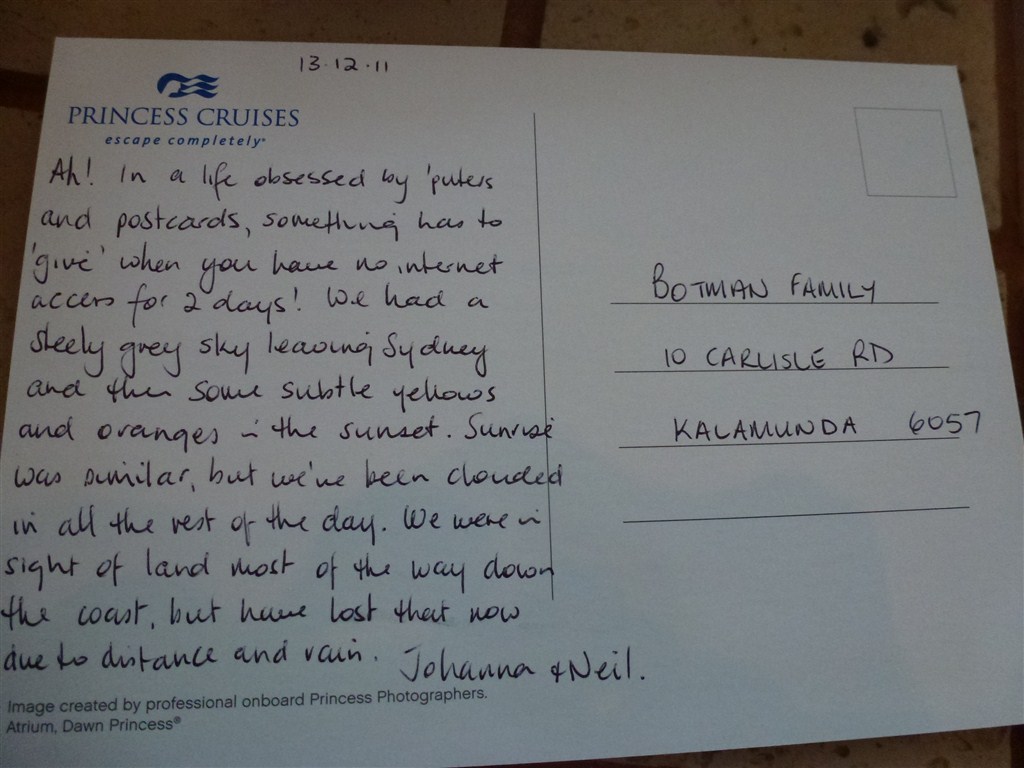 13.12.11
PRINCESS CRUISES
escape completely®
Ah! In a life obsessed by 'puters
and postcards, something has to
'give' when you have no internet
access for 2 days! We had a
steely grey sky leaving Sydney
and then some subtle yellows
and oranges in the sunset. Sunrise
was similar, but we've been clouded
in all the rest of the day. We were in
sight of land most of the way down
the coast, but have lost that now
due to distance and rain. Johanna & Neil.
Image created by professional onboard Princess Photographers.
Atrium, Dawn Princess®
BOTMAN FAMILY
10 CARLISLE RD
KALAMUNDA 6057